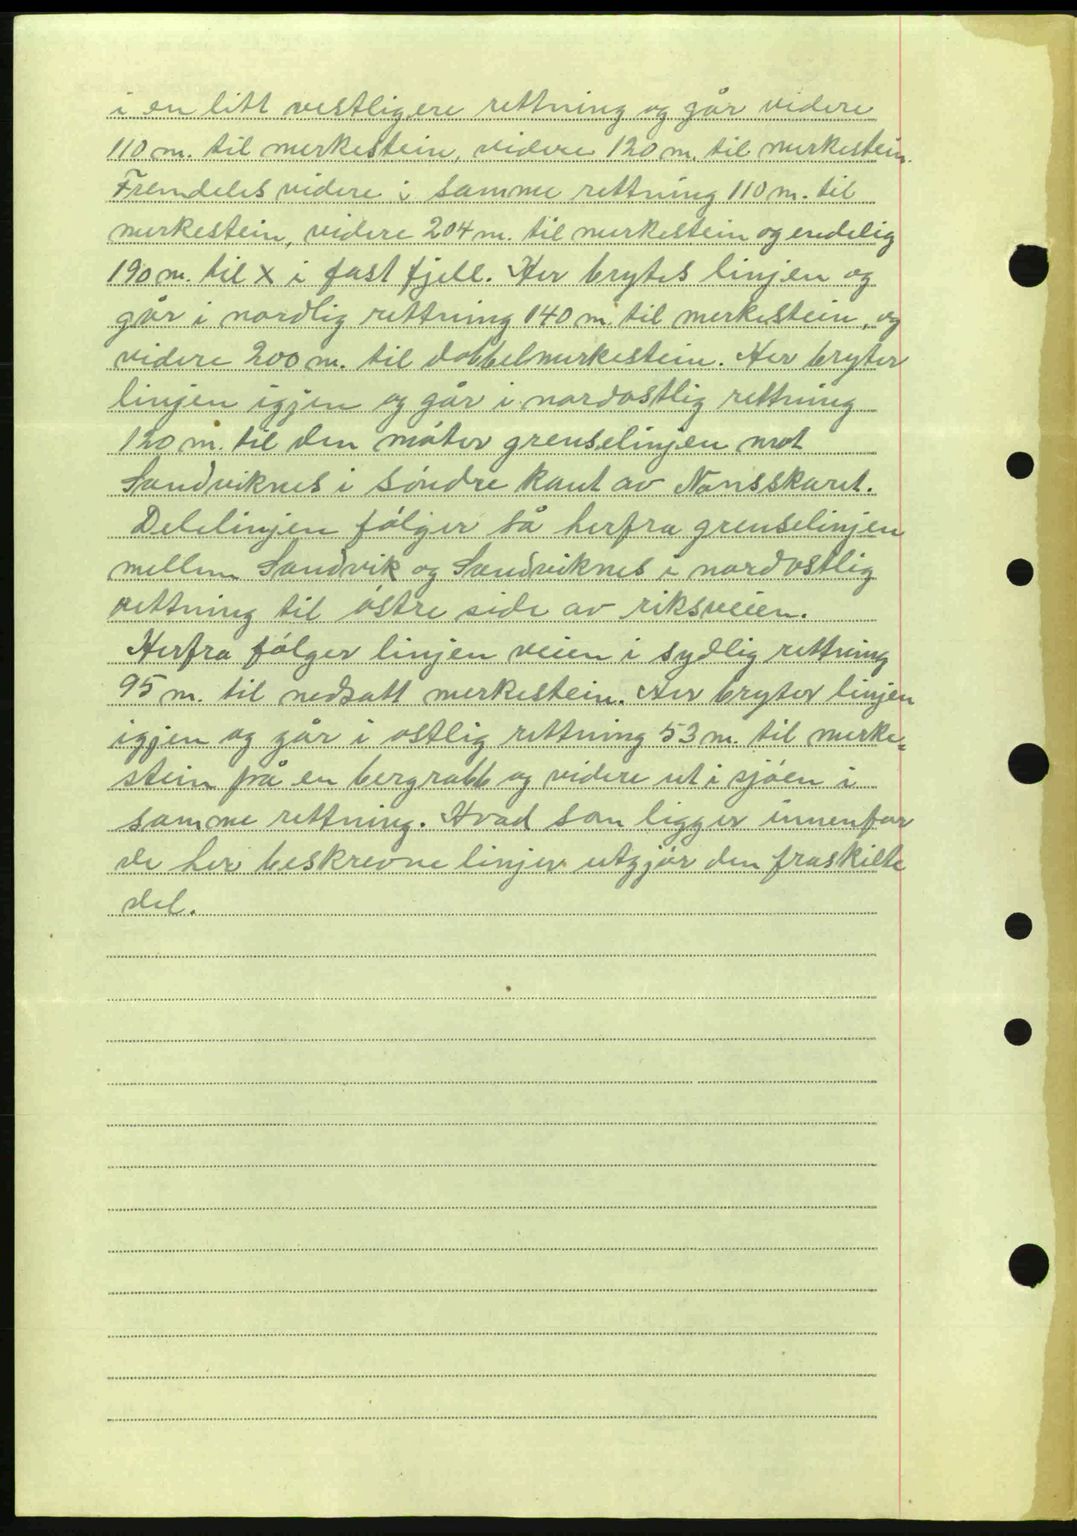 i en litt vestligere rettning og går videre
110 m. til merkestein, videre 120 m. til merkestein.
Fremdeles videre i samme rettning 110 m. til
merkestein, videre 204 m. til merkestein og endelig
190 m. til X i fast fjell. Her brytes linjen og
går i nordlig rettning 140 m. til merkestein, og
videre 200 m. til dobbelmerkestein. Her bryter
linjen igjen og går i nordostlig rettning
120 m. til den møter grenselinjen mot
Sandviknes i søndre kant av Nonsskaret.
Delelinjen følger så herfra grenselinjen
mellem Sandvik og Sandviknes i nordostlig
rettning til østre side av riksveien.
Herfra følger linjen veien i sydlig rettning
95 m. til nedsatt merkestein. Her bryter linjen
igjen og går i ostlig rettning 53 m. til merke=
stein på en bergrabb og videre ut i sjøen i
samme rettning. Hvad som ligger innenfor
de her beskrevne linjer utgjør den fraskilte
del.